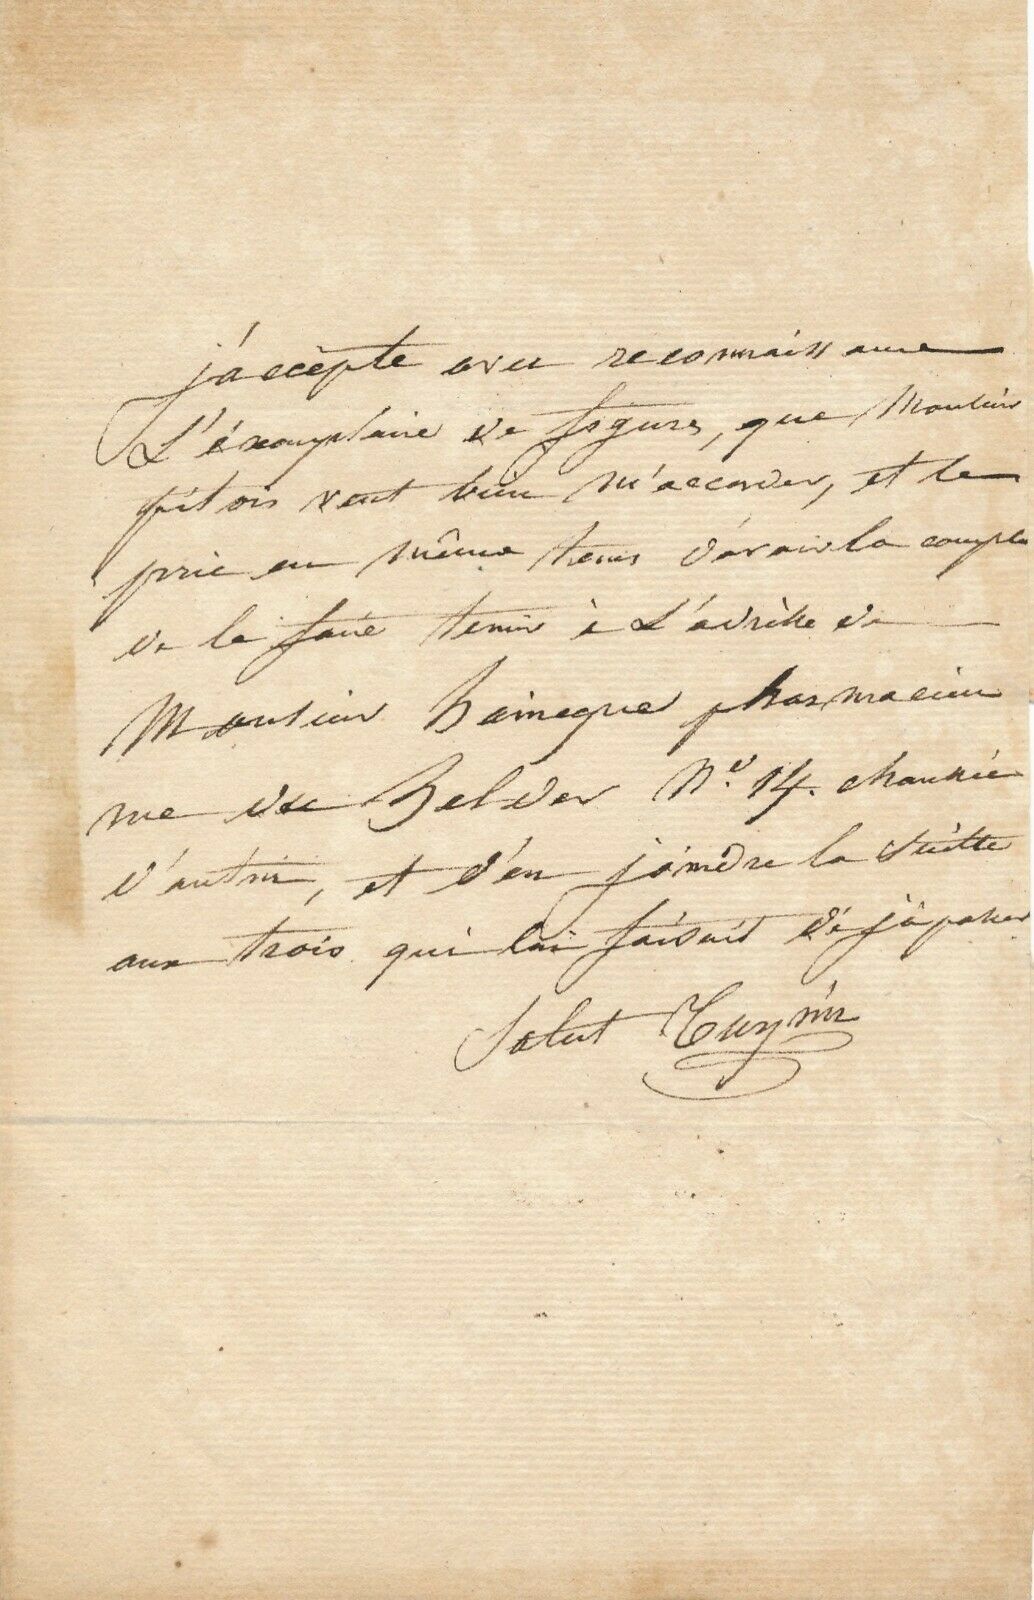 j'accèpte avec reconnaissance
L'éxemplaire de figures, que Monsieur
pitois veut bien m'accorder, et le
prie en même tems d'avoir la compl.
de le faire tenir à L'adrèsse de
Monsieur pharmacien
rue du Helder N.o 14. chaussée
d'antin, et d'en joindre la suitte
aux trois qui lui faisait déjà passer
Salut